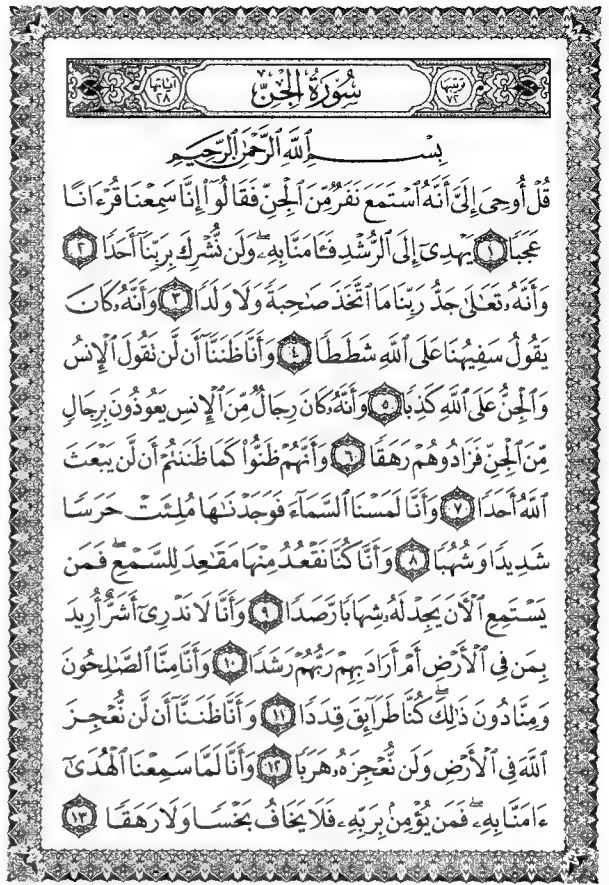 ترتيبها ٧٢ سُورَةُ الجِنِّ آياتها ٢٨
بِسْمِ ٱللَّهِ ٱلرَّحْمَٰنِ ٱلرَّحِيمِ
قُلْ أُوحِيَ إِلَيَّ أَنَّهُ ٱسْتَمَعَ نَفَرٌ مِّنَ ٱلْجِنِّ فَقَالُوٓا۟ إِنَّا سَمِعْنَا قُرْءَانًا
عَجَبًا ١ يَهْدِىٓ إِلَى ٱلرُّشْدِ فَـَٔامَنَّا بِهِۦ ۖ وَلَن نُّشْرِكَ بِرَبِّنَآ أَحَدًا ٢
وَأَنَّهُۥ تَعَٰلَىٰ جَدُّ رَبِّنَا مَا ٱتَّخَذَ صَٰحِبَةً وَلَا وَلَدًا ٣ وَأَنَّهُۥ كَانَ
يَقُولُ سَفِيهُنَا عَلَى ٱللَّهِ شَطَطًا ٤ وَأَنَّا ظَنَنَّآ أَن لَّن تَقُولَ ٱلْإِنسُ
وَٱلْجِنُّ عَلَى ٱللَّهِ كَذِبًا ٥ وَأَنَّهُۥ كَانَ رِجَالٌ مِّنَ ٱلْإِنسِ يَعُوذُونَ بِرِجَالٍ
مِّنَ ٱلْجِنِّ فَزَادُوهُمْ رَهَقًا ٦ وَأَنَّهُمْ ظَنُّوا۟ كَمَا ظَنَنتُمْ أَن لَّن يَبْعَثَ
ٱللَّهُ أَحَدًا ٧ وَأَنَّا لَمَسْنَا ٱلسَّمَآءَ فَوَجَدْنَٰهَا مُلِئَتْ حَرَسًا
شَدِيدًا وَشُهُبًا ٨ وَأَنَّا كُنَّا نَقْعُدُ مِنْهَا مَقَٰعِدَ لِلسَّمْعِ ۖ فَمَن
يَسْتَمِعِ ٱلْـَٔانَ يَجِدْ لَهُۥ شِهَابًا رَّصَدًا ٩ وَأَنَّا لَا نَدْرِىٓ أَشَرٌّ أُرِيدَ
بِمَن فِى ٱلْأَرْضِ أَمْ أَرَادَ بِهِمْ رَبُّهُمْ رَشَدًا ١٠ وَأَنَّا مِنَّا ٱلصَّٰلِحُونَ
وَمِنَّا دُونَ ذَٰلِكَ ۖ كُنَّا طَرَآئِقَ قِدَدًا ١١ وَأَنَّا ظَنَنَّآ أَن لَّن نُّعْجِزَ
ٱللَّهَ فِى ٱلْأَرْضِ وَلَن نُّعْجِزَهُۥ هَرَبًا ١٢ وَأَنَّا لَمَّا سَمِعْنَا ٱلْهُدَىٰٓ
ءَامَنَّا بِهِۦ ۖ فَمَن يُؤْمِنۢ بِرَبِّهِۦ فَلَا يَخَافُ بَخْسًا وَلَا رَهَقًا ١٣